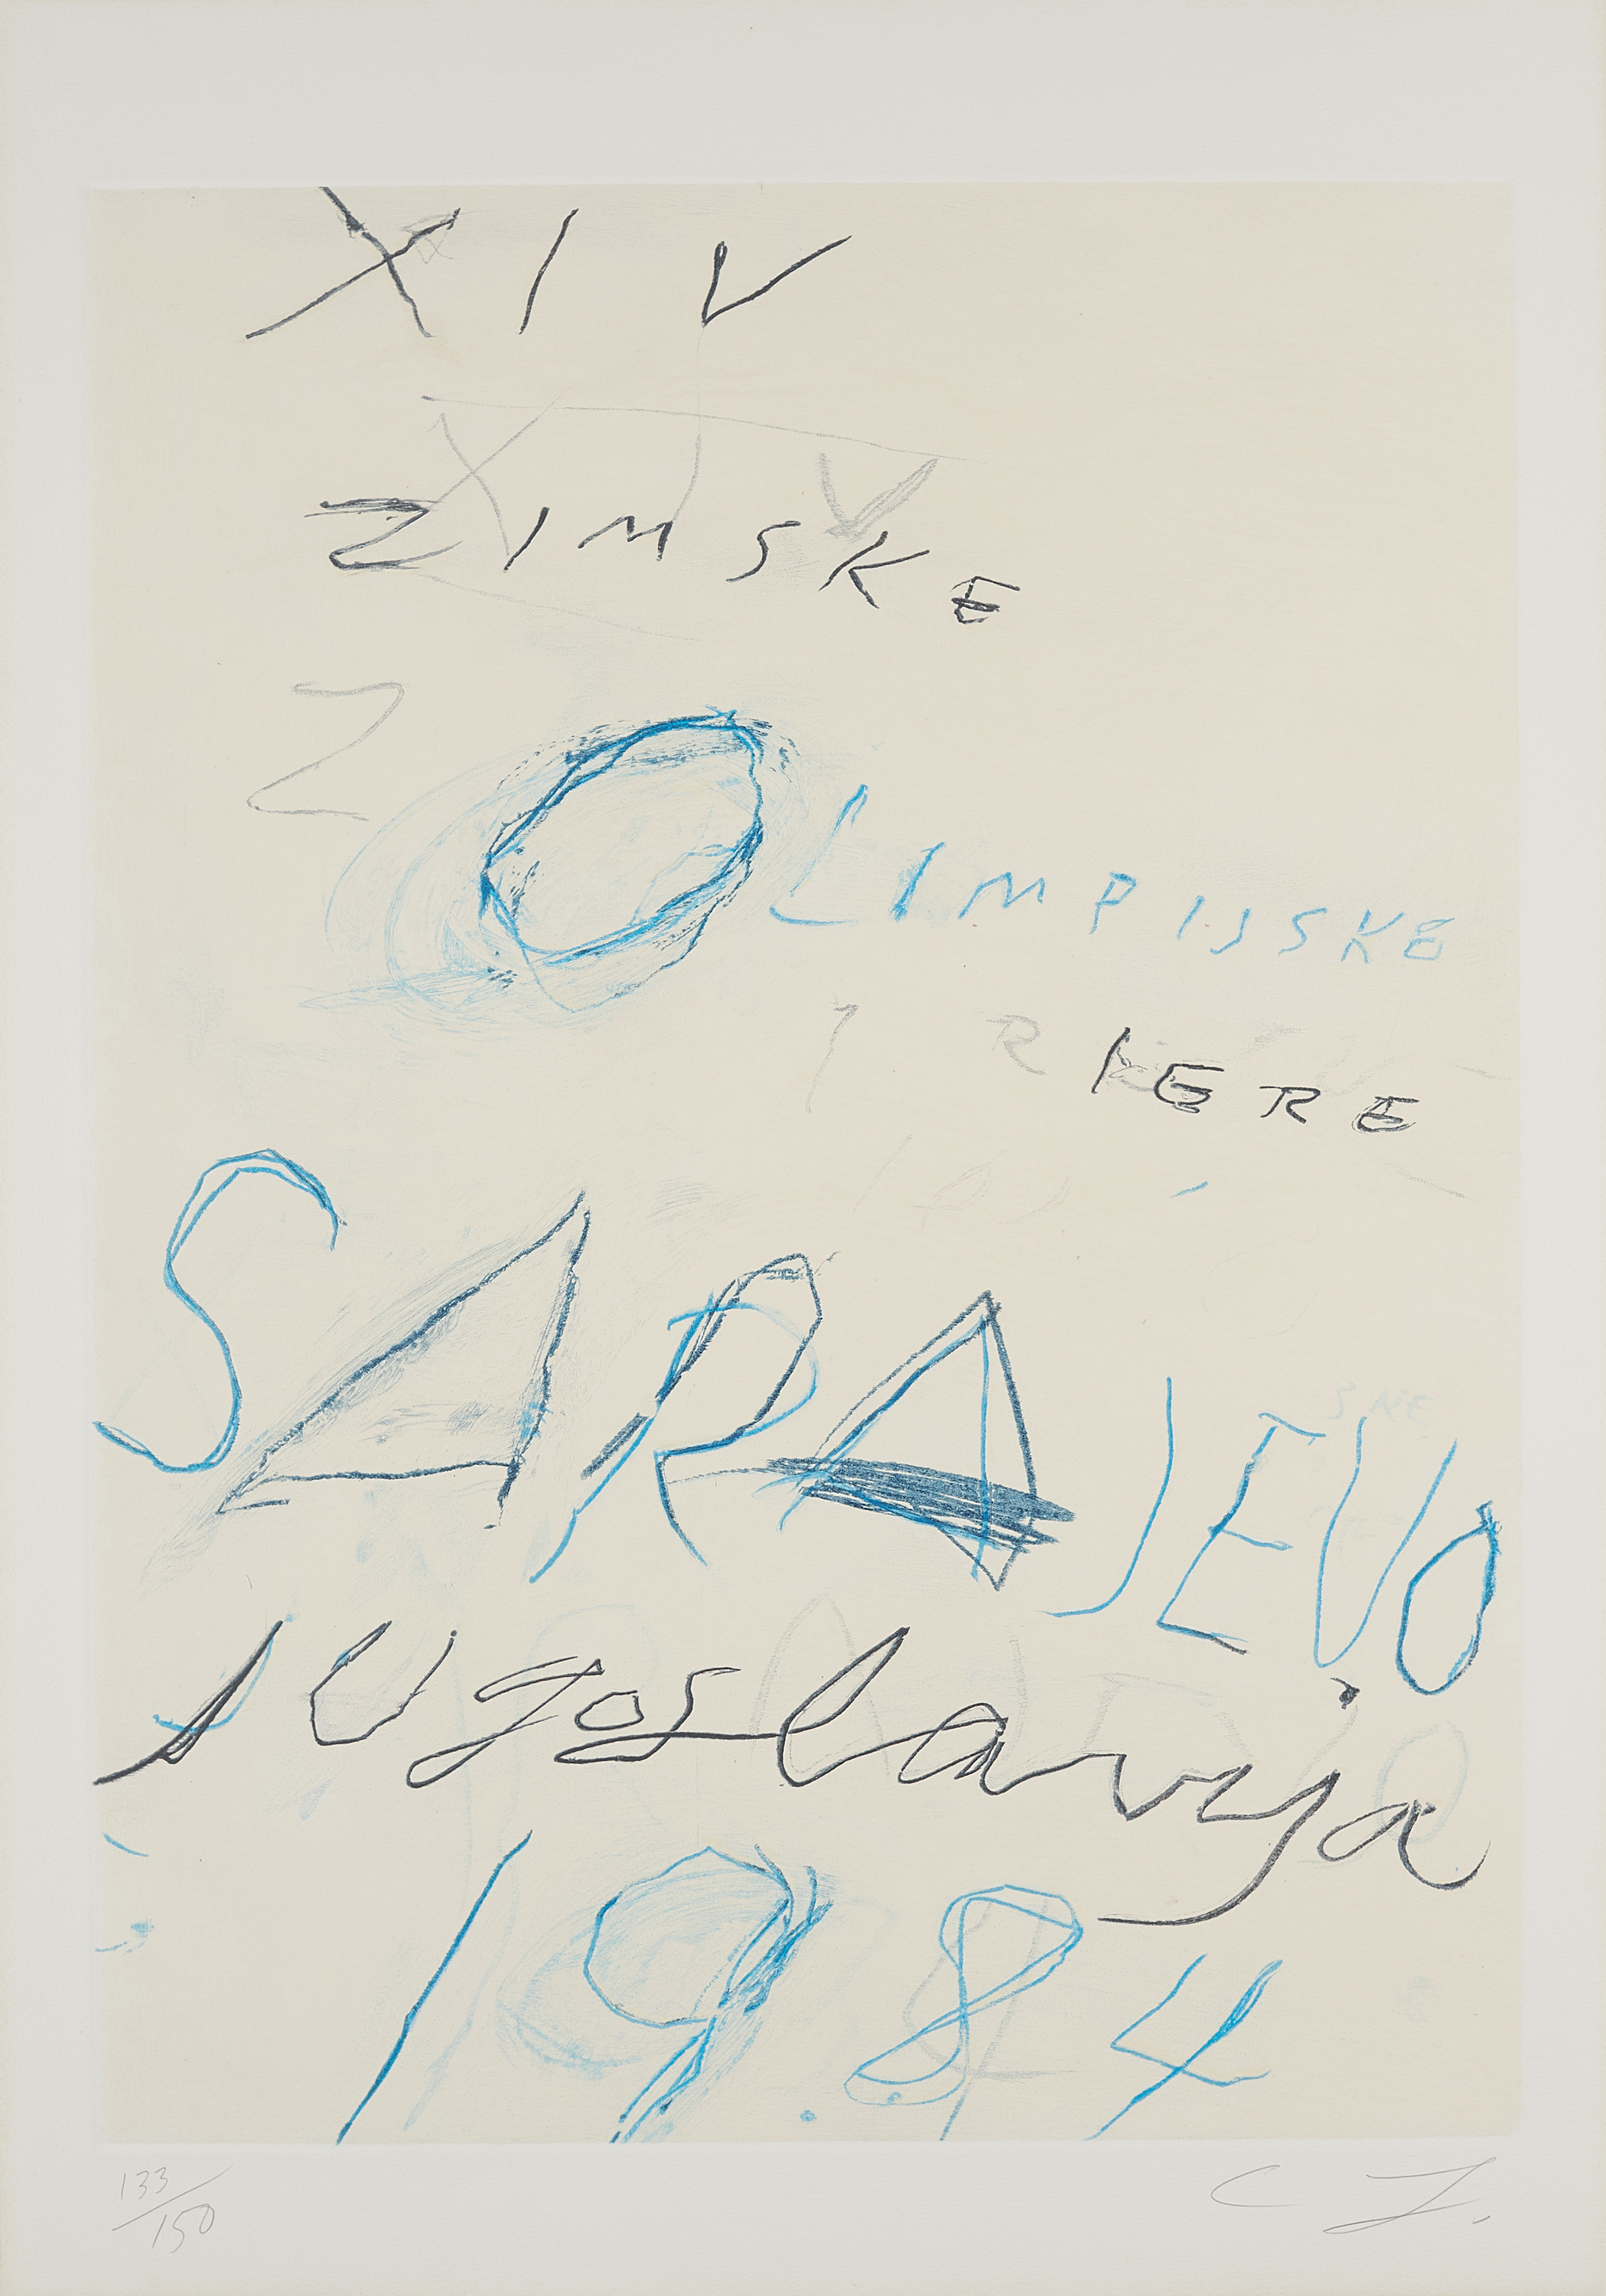 XIV
ZIMSKE
Z OLIMPIJSKE
R IGRE
SARAJEVO
JUgoslavija
1984
133/150
CT.